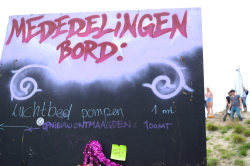 MEDEDELINGEN
BORD:
Luchtbed pompen 1 mt
OPNIEUW ONTMAAGDEN = 100MT